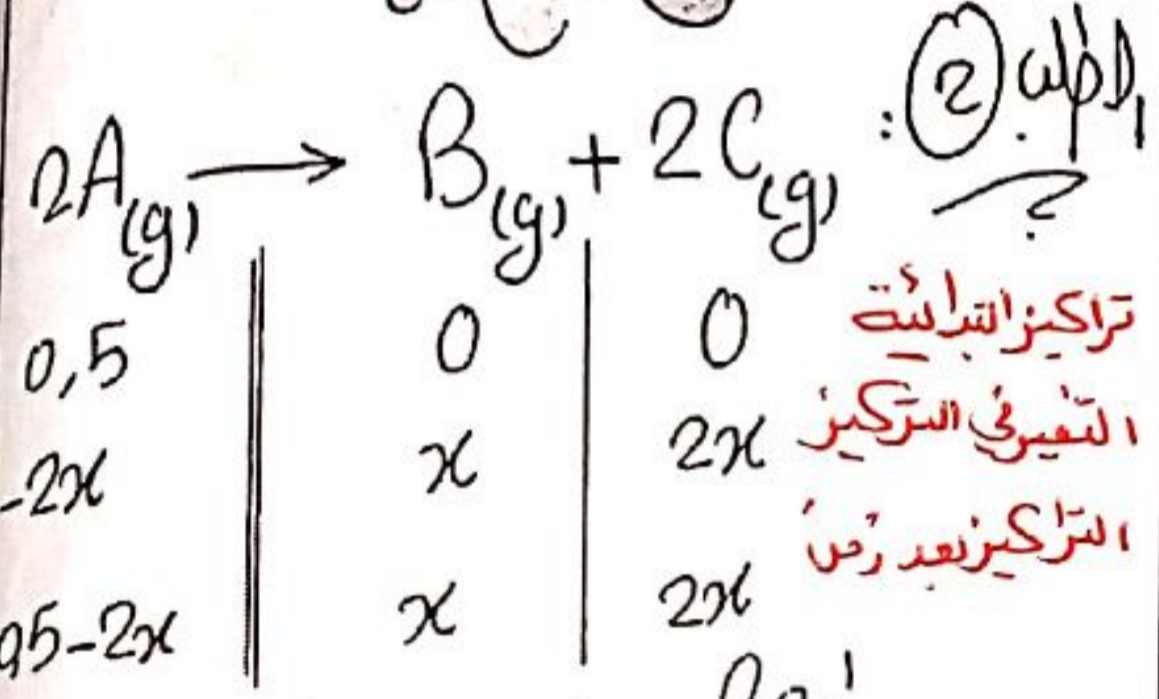 الطلب (2) :
2A(g) → B(g) + 2C(g)
0,5 0 0 تراكيز ابتدائية
-2x x 2x التغير في التركيز
0,5-2x x 2x التراكيز بعد زمن